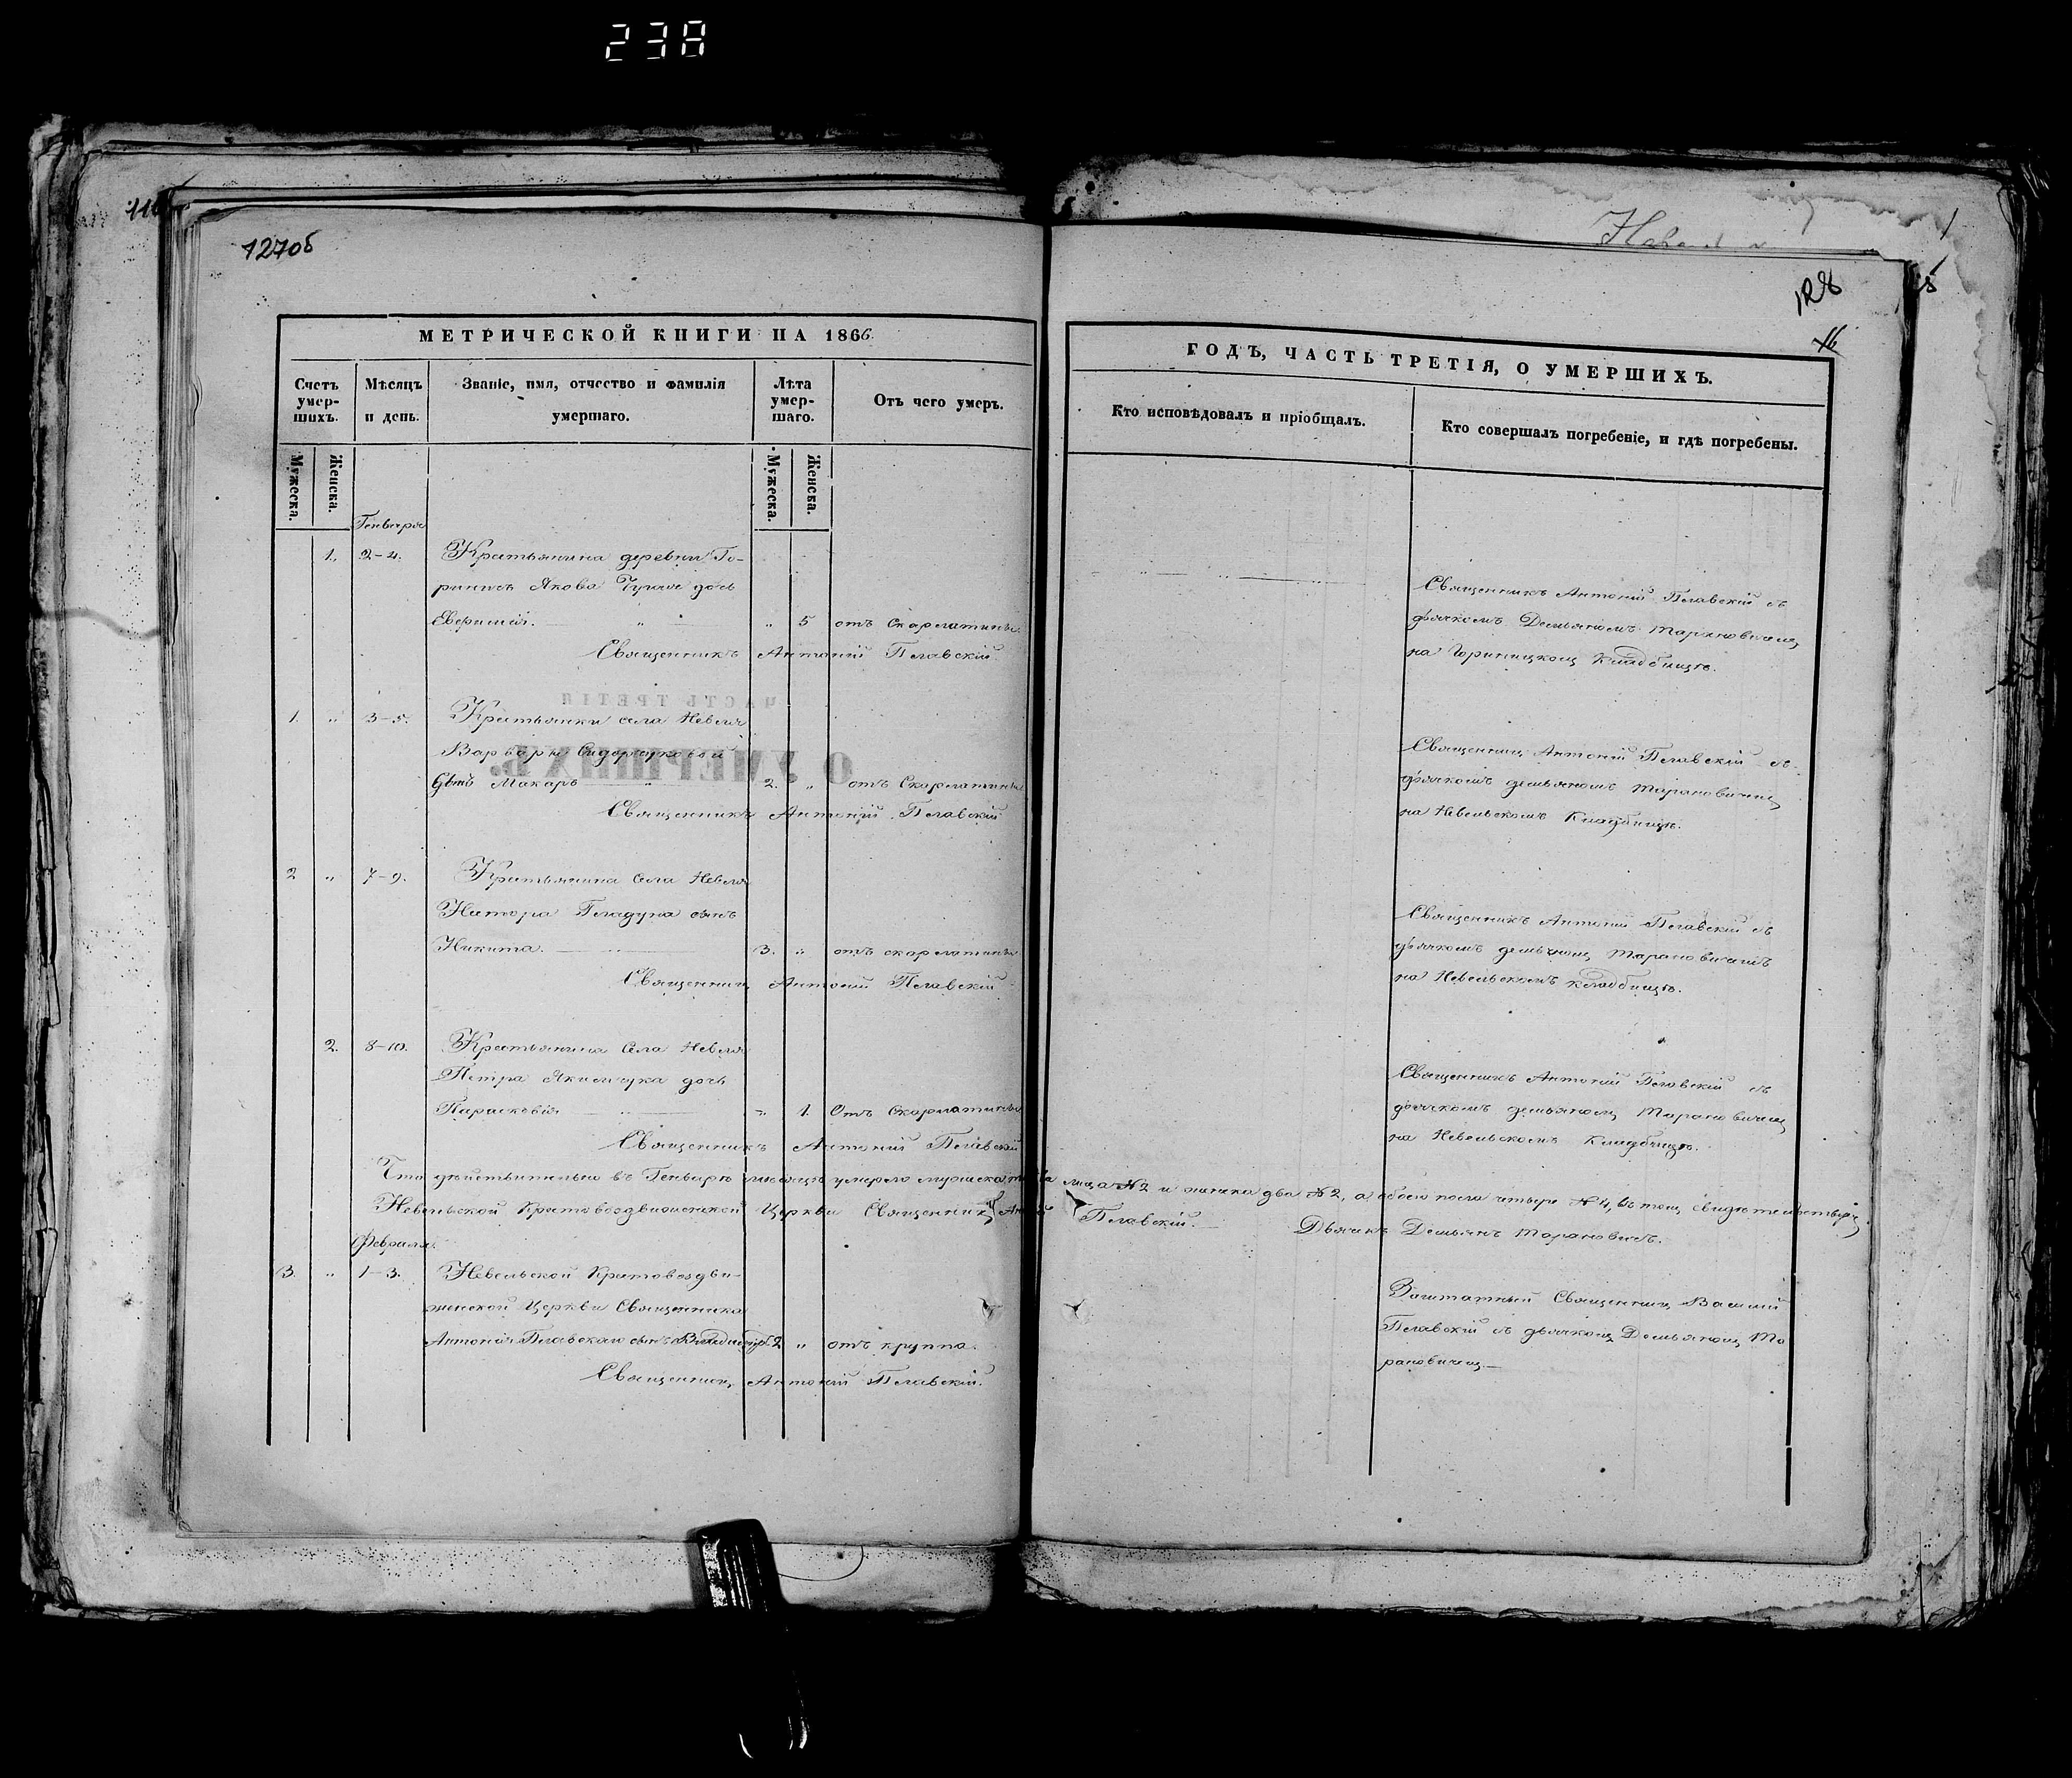 238
127об
128
16
МЕТРИЧЕСКОЙ КНИГИ НА 1866
ГОДЪ, ЧАСТЬ ТРЕТІЯ, О УМЕРШИХЪ.
Счетъ умер-шихъ.
Мѣсяцъ и день.
Званіе, имя, отчество и фамилія умершаго.
Лѣта умер-шаго.
Отъ чего умеръ.
Кто исповѣдовалъ и пріобщалъ.
Кто совершалъ погребеніе, и гдѣ погребены.
Мужеска.
Женска.
Мужеска.
Женска.
Генваря
1. 2-4. Крестьянина деревни Го-
ринич Якова дочь
" 5 отъ Скарлатины
Священникъ Антоній Пѣлавскій.
Священникъ Антоній Пѣлавскій съ
дьячкомъ Демьяномъ Тарановичемъ
на Кладбищѣ.
1. " 3-5. Крестьянки села Невеля
Варвары
сынъ Макаръ " 2. " отъ Скарлатины
Священникъ Антоній Пѣлавскій
Священникъ Антоній Пѣлавскій съ
дьячкомъ демьяномъ Тарановичемъ
на Невельскомъ Кладбищѣ.
2 " 7-9. Крестьянина Села Невеля
Нестора Гладуна сынъ
Никита. " 3. " отъ скарлатины
Священникъ Антоній Пѣлавскій
Священникъ Антоній Пѣлавскій съ
дьячкомъ демьяномъ Тарановичемъ
на Невельскомъ кладбищѣ.
2. 8-10. Крестьянина Села Невеля
Петра дочь
Параскевія " 1. Отъ Скарлатины
Священникъ Антоній Пѣлавскій
Священникъ Антоній Пѣлавскій съ
дьячкомъ демьяномъ Тарановичемъ
на Невельскомъ Кладбищѣ.
Что дѣйствительно въ Генварѣ мѣсяцѣ умерло мужеска пола лица №2 и женска два №2, а обоего пола четыре №4, въ томъ свидѣтельствуемъ
Невельской Крестовоздвиженской Церкви Священникъ Антоній Пѣлавскій. Дьячекъ Демьянъ Тарановичъ.
Февраля.
3. " 1-3. Невельской Крестовоздви-
женской Церкви Священника
Антонія Пѣлавскаго сынъ 2 " отъ круппа.
Священникъ Антоній Пѣлавскій.
Заштатный Священникъ Василій
Пѣлавскій съ дьячкомъ Демьяномъ Та
рановичемъ.